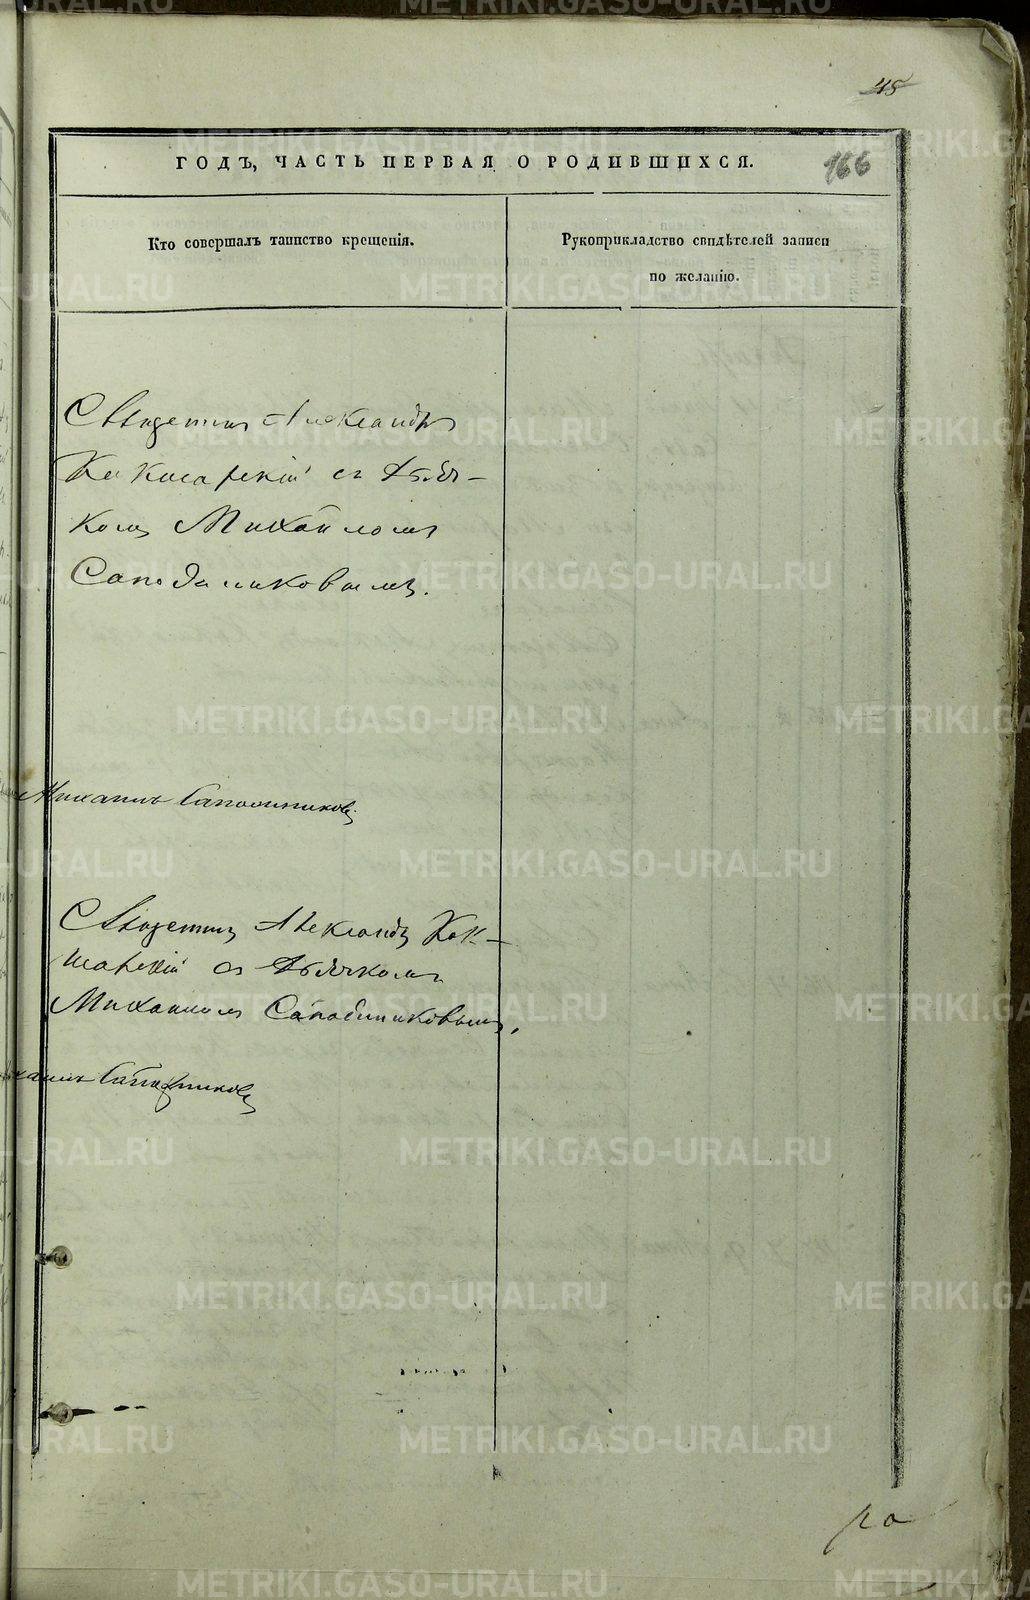 45
ГОДЪ, ЧАСТЬ ПЕРВАЯ О РОДИВШИХСЯ.
166
Кто совершалъ таинство крещенія.
Рукоприкладство свидѣтелей записи
по желанію.
Священникъ Александръ
Кокшарскій съ Дья-
комъ Михайломъ
Сапожниковымъ.
Михаилъ Сапожниковъ
Священникъ Александръ Кок-
шарскій съ Дьячкомъ
Михаиломъ Сапожниковымъ.
хаилъ Сапожниковъ
METRIKI.GASO-URAL.RU